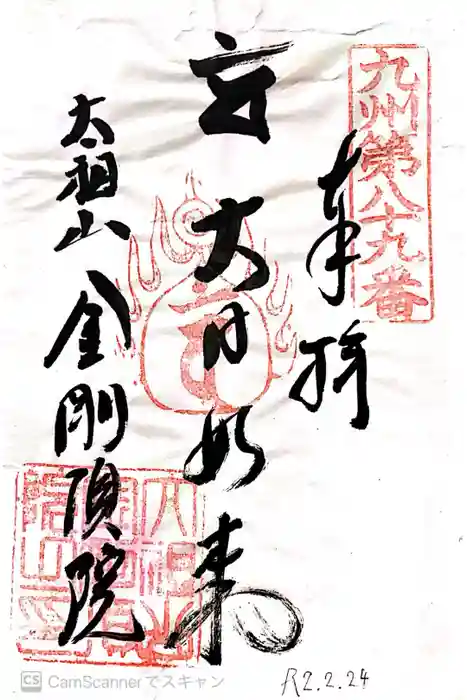 九州第八十九番
奉拝
大日如来
太祖山 金剛頂院
R2.2.24
CS CamScannerでスキャン